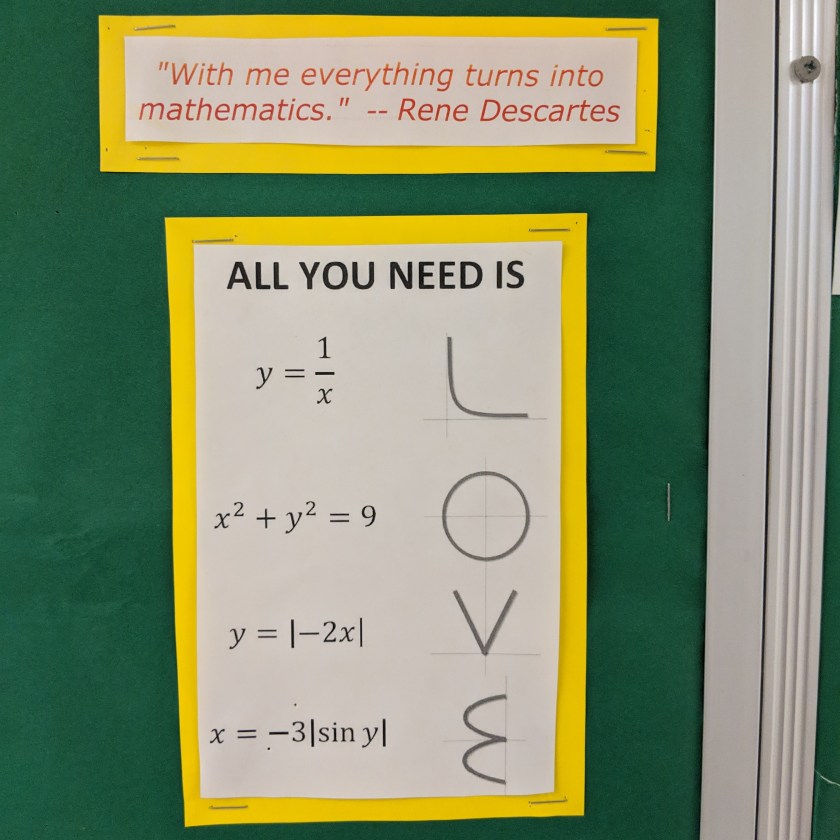 "With me everything turns into
mathematics." -- Rene Descartes
ALL YOU NEED IS
y = 1/x
x² + y² = 9
y = |−2x|
x = −3|sin y|